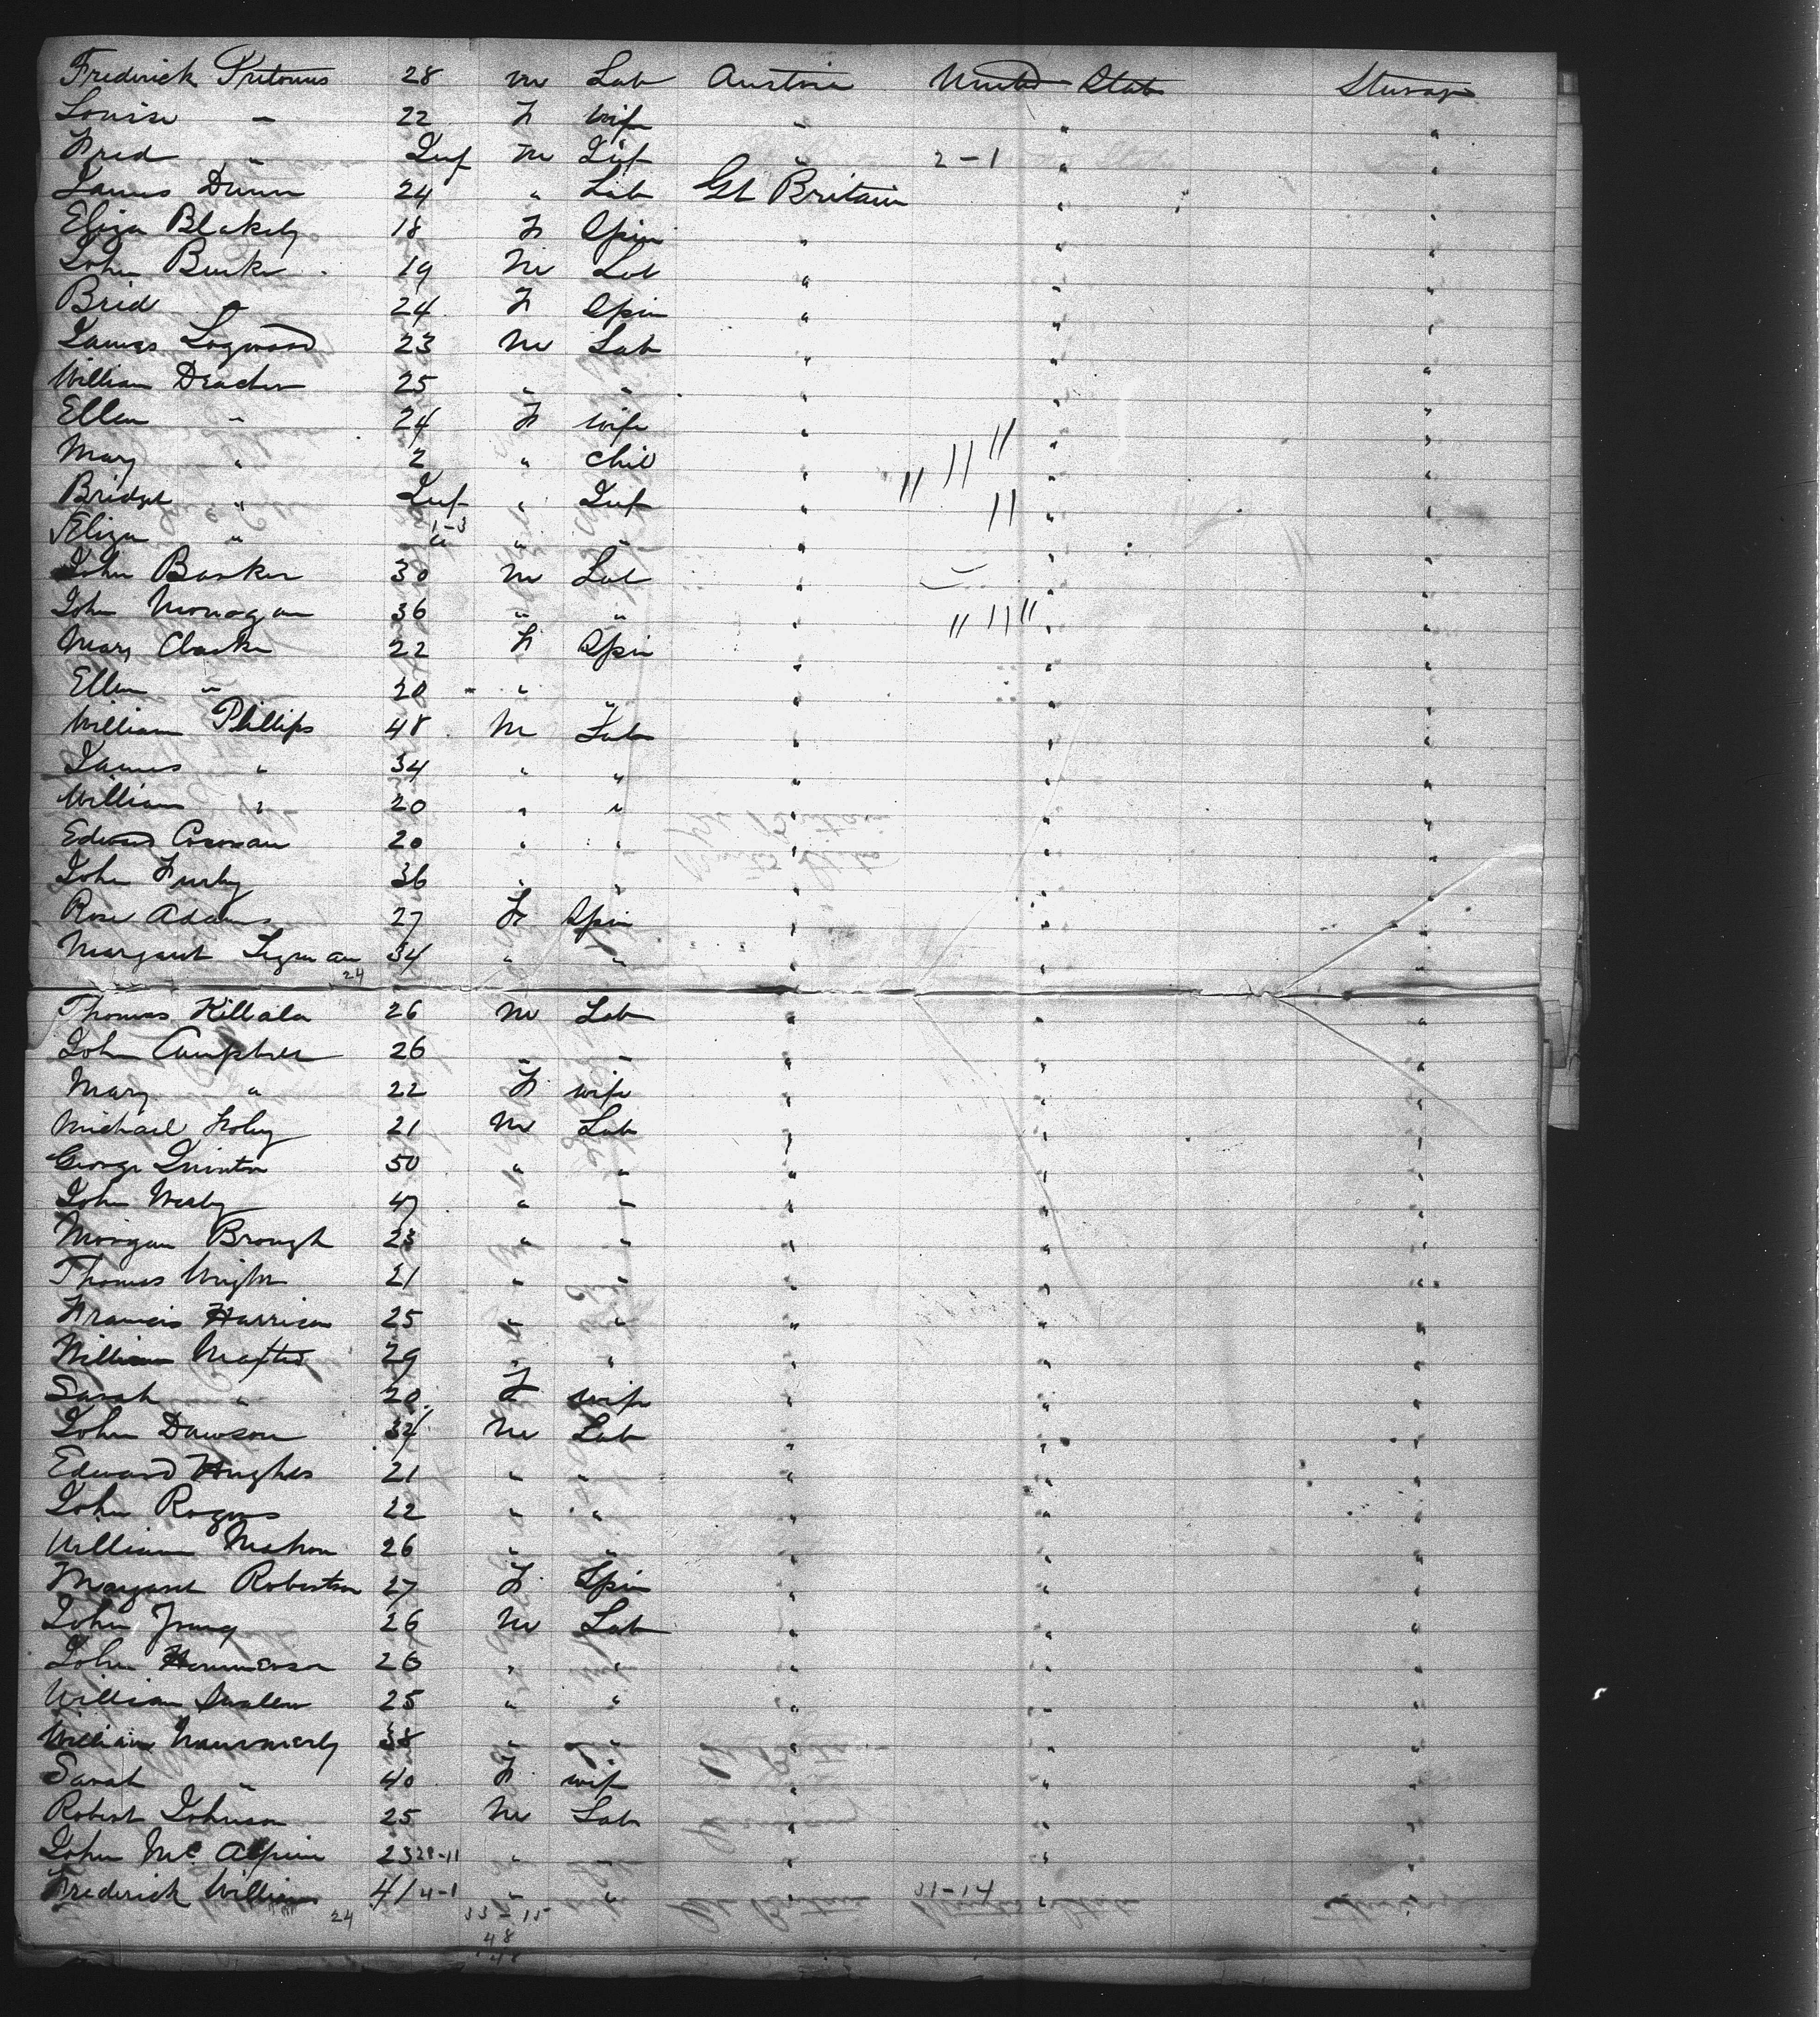 Frederick 28 m Lab Austria United States Steerage
Louise " 22 F wife " " "
Fred " Inf m Inf " 2-1 " "
James Dunn 24 " Lab Gt Britain " "
Eliza Blakely 18 F Spin " " "
John Burke 19 M Lab " " "
Brid " 24 F Spin " " "
James Logwood 23 M Lab " " "
William 25 " " " " "
Ellen " 24 F wife " " "
Mary " 2 " chil " " "
Bridget " Inf " Inf " " "
Eliza " " " " " " "
1-3
John Barker 30 M Lab " " "
John Monogan 36 " " " " "
Mary Clarke 22 F Spin " " "
Ellen " 20 " " " " "
William Phillips 48 M Lab " " "
James " 34 " " " " "
William " 20 " " " " "
Edward 20 " " " " "
John 36 " " " " "
Rose Adams 27 F Spin " " "
Margaret 34 " " " " "
24
Thomas Killala 26 M Lab " " "
John 26 " " " " "
Mary " 22 F wife " " "
Michael Foley 21 M Lab " " "
George Quinton 50 " " " " "
John 47 " " " " "
Morgan Brough 23 " " " " "
Thomas Wright 21 " " " " "
Francis Harrison 25 " " " " "
William 29 " " " " "
Sarah " 20 F wife " " "
John Dawson 34 M Lab " " "
Edward Hughes 21 " " " " "
John Rogers 22 " " " " "
William Mahon 26 " " " " "
Margaret Robertson 27 F Spin " " "
John Young 26 M Lab " " "
John 26 " " " " "
William 25 " " " " "
William 38 " " " " "
Sarah " 40 F wife " " "
Robert Johnson 25 M Lab " " "
John McAlpine 23 28-11 " " " " "
Frederick William 41 4-1 " " " 31-14 " "
24 33-15
48
48